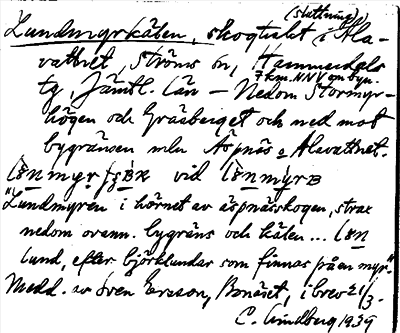 (sluttning)
Lundmyrkälen, skogtrakt i Ala-
vattnet, Ströms sn, Hammerdals
7 km. NNV om byn.
tg, Jämtl. län — Nedom Stormyr-
högen och Gråberget och ned mot
bygränsen mln Äspnäs o Alavattnet.
vid
"Lundmyren i hörnet av äspnässkogen, strax
nedom ovann. bygräns och kälen ...
lund, efter björklundar som finnas på en myr."
Medd. av Sven Ersson, Bonäset, i brev 21/3.
C. Lindberg 1939